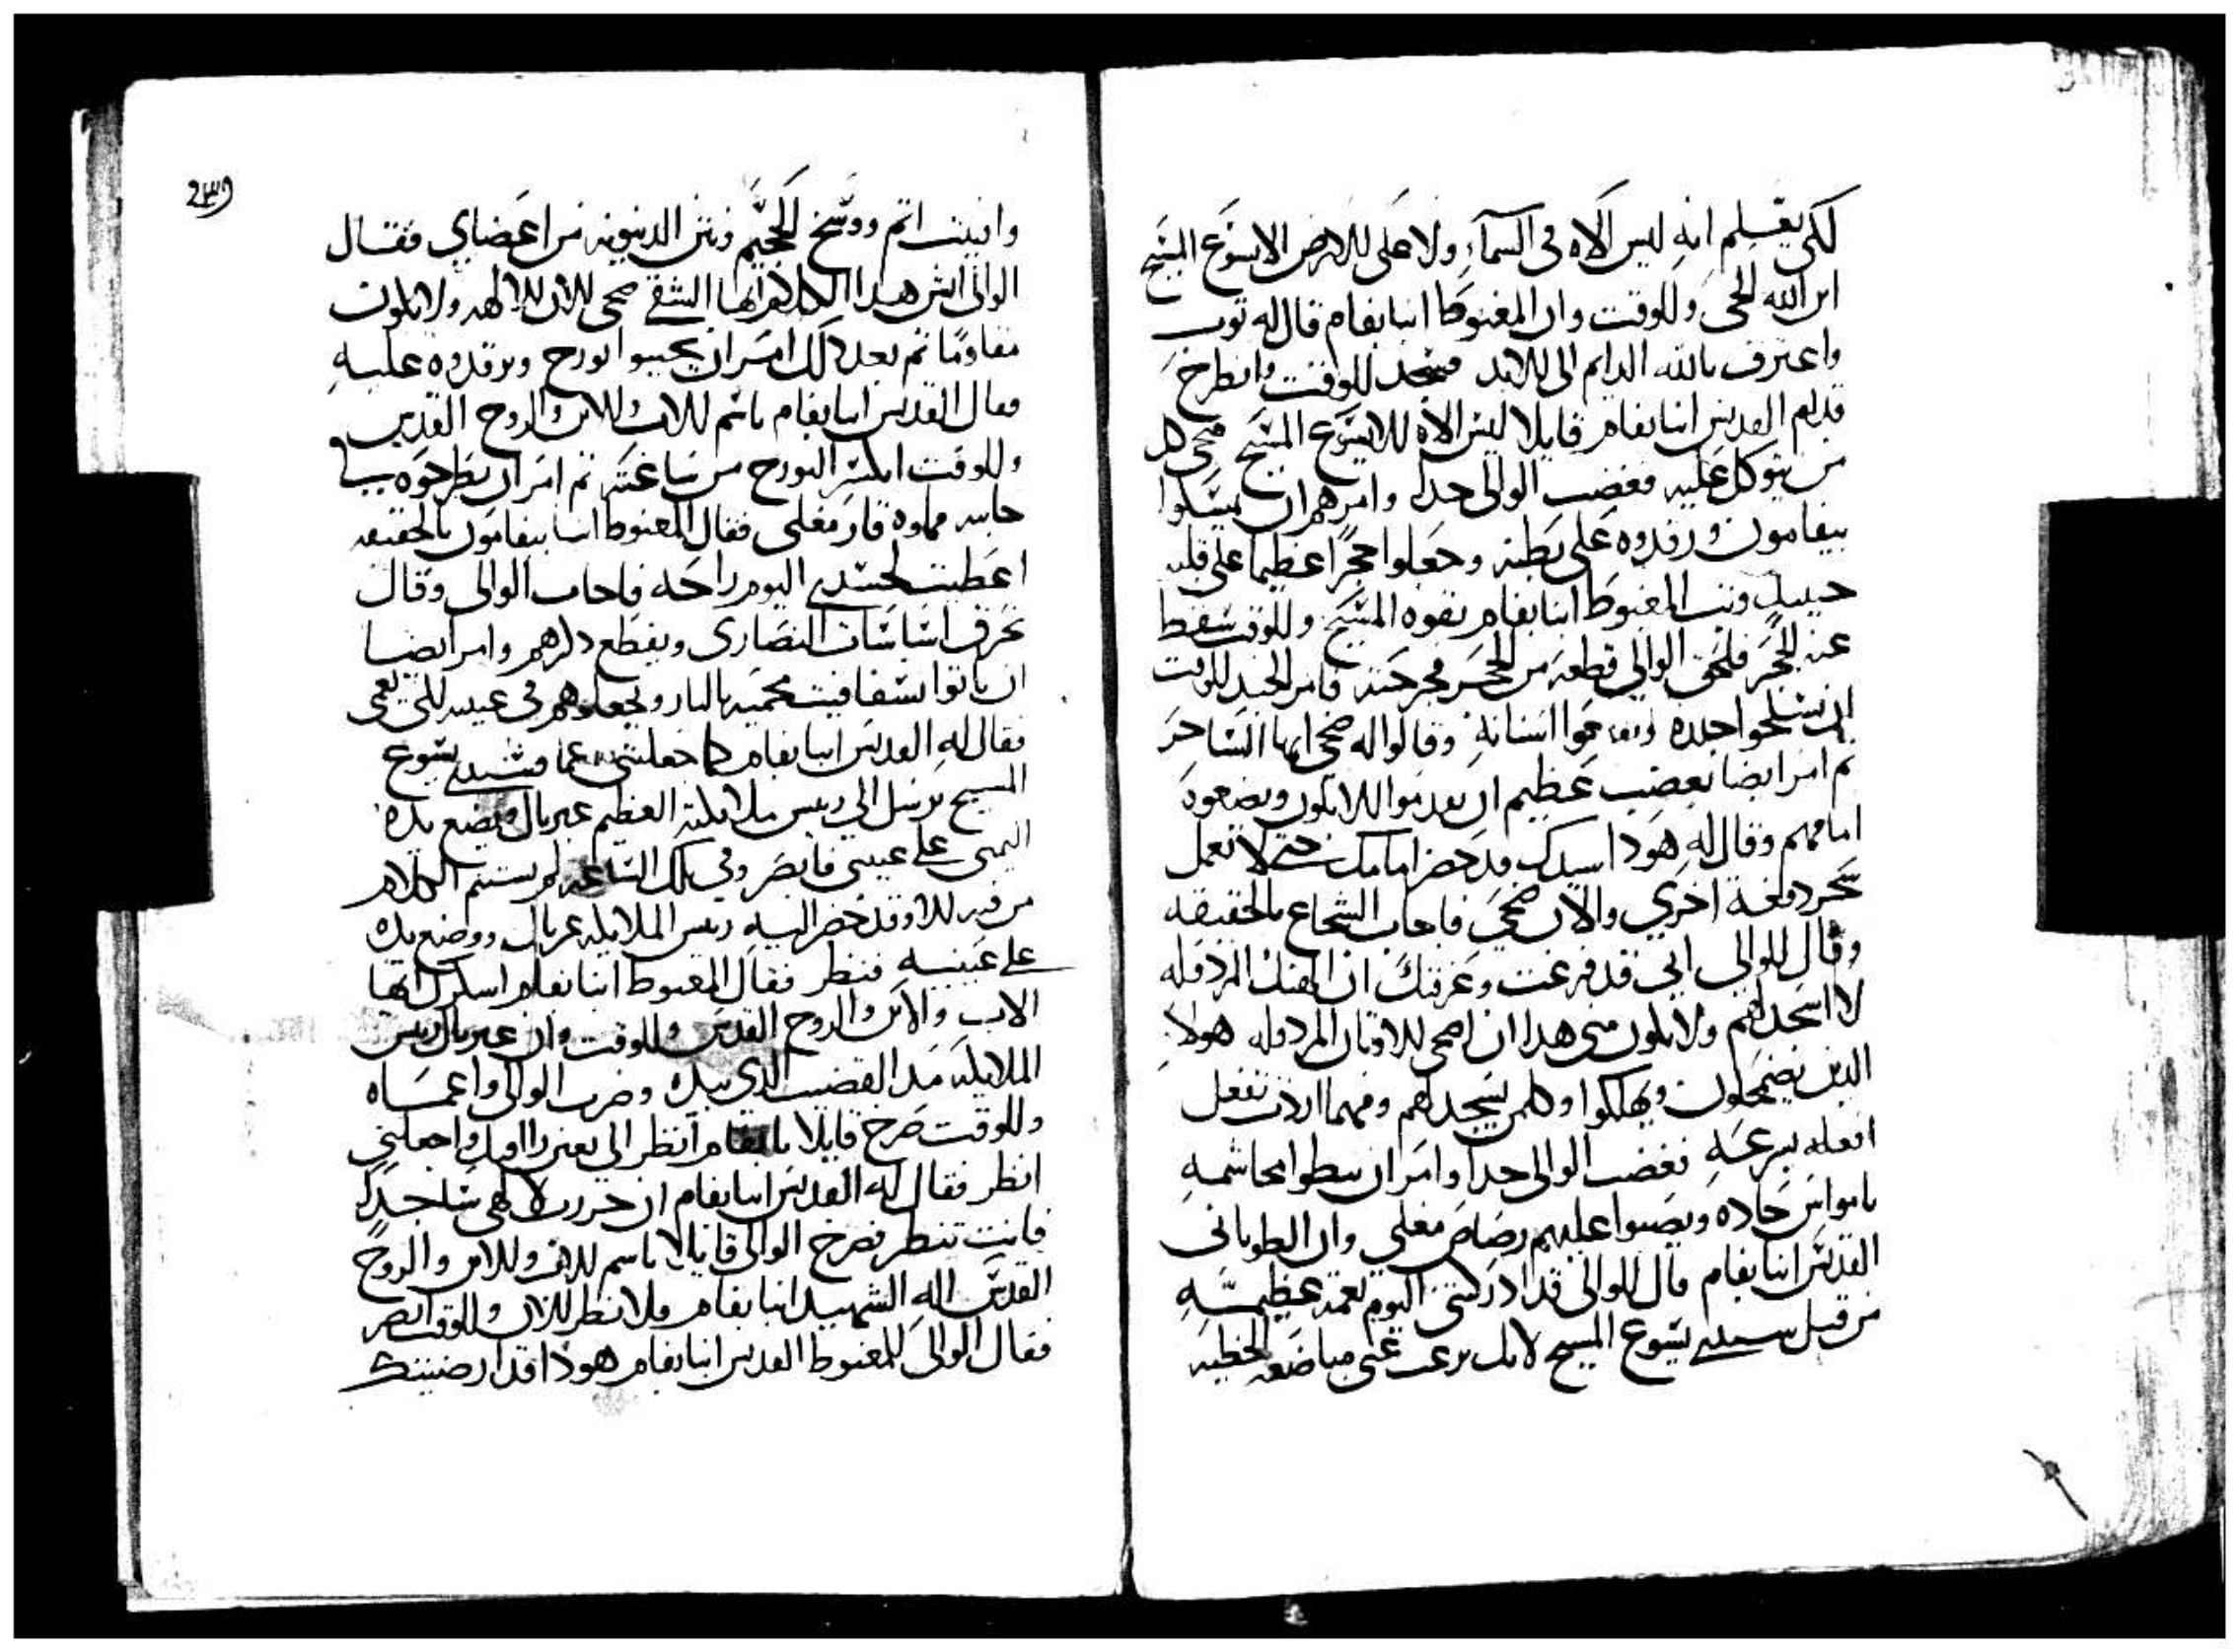 لكي يعلم انه ليس الاه في السماء ولا على الارض الا يسوع المسيح
ابن الله الحي وللوقت وان المغبوط انبا بفام قال له توب
واعترف بالله الدايم الى الابد فسجد للوقت وانطرح
قدام القديس انبا بفام قايلا ليس الاه الا يسوع المسيح منجي كل
من يتوكل عليه فغضب الوالي جدا وامرهم ان يمسكوا
بيفامون ورقدوه على بطنه وجعلوا حجرا عظيما على قلبه
حينيد وثب المغبوط انبا بفام بقوه المسيح وللوقت سقط
عنه الحجر الوالي قطعه من الحجر فجرحته فامر الجند للوقت
ان يسلخوا جلده اسنانه وقالوا له ضحي ايها الساحر
ثم امر ايضا بغضب عظيم ان يقدموا الابلون ويضعوه
امامهم وقال له هودا سيدك قد حضر امامك حتى لا تعمل
سحر دفعة اخري والان ضحي فاجاب الشجاع بالحقيقه
وقال للوالي اني قد فرغت وعرفتك ان الهتك المردوله
لا اسجد لهم ولا يكون مني هدا ان اضحي للاوتان المردوله هولاء
الدين يضمحلون ويهلكوا وكلمن يسجد لهم ومهما اردت تفعل
افعله بسرعه فغضب الوالي جدا وامر ان يبطوا محاشمه
بامواس حاده ويصبوا عليهم رصاص مغلي وان الطوباني
القديس انبا بفام قال للوالي قد ادركتني اليوم نعمه عظيمه
من قبل سيدي يسوع المسيح لانك نزعت عني مباضعه الخطيه
239
وانبتت اتم ووسخ الجحيم ونتن الدينونه من اعضاي فقال
الوالي ايش هدا الكلام ايها الشقي ضحي الان للالهه ولا تكون
مقاوما تم بعد دلك امر ان يجيبوا نورج ويرقدوه عليه
فقال القديس انبا بفام باسم الاب والابن والروح القدس
وللوقت انكسر النورج من ساعته تم امر ان يطرحوه في
خابيه مملوه قار مغلي فقال المغبوط انبا بيفامون بالحقيقه
اعطيت لجسدي اليوم راحه فاجاب الوالي وقال
تحرق اساسات النصارى ويقطع دكرهم وامر ايضا
ان ياتوا بسفافيت محميه بالنار ويجعلوهم في عينيه لكي يعمي
فقال له القديس انبا بفام كما جعلتني اعما فسيدي يسوع
المسيح يرسل الي رييس ملايكته العظيم غبريال ويضع يده
اليمني على عيني فابصر وفي تلك الساعه لم يستتم الكلام
من فيه الا وقد حضر اليه رييس الملايكه غبريال ووضع يده
على عينيه فنظر فقال المغبوط انبا بفام اشكرك ايها
الاب والابن والروح القدس وللوقت وان غبريال رييس
الملايكه مد القضيب الدي بيده وضرب الوالي واعماه
وللوقت صرخ قايلا يا بفام انظر الي بعين الرافه واجعلني
انظر فقال له القديس انبا بفام ان خررت لالهي ساجدا
فانت تنظر فصرخ الوالي قايلا باسم الاب والابن والروح
القدس اله الشهيد انبا بفام فلانظر الان وللوقت ابصر
فقال الوالي للمغبوط القديس انبا بفام هودا قد ارضيتك